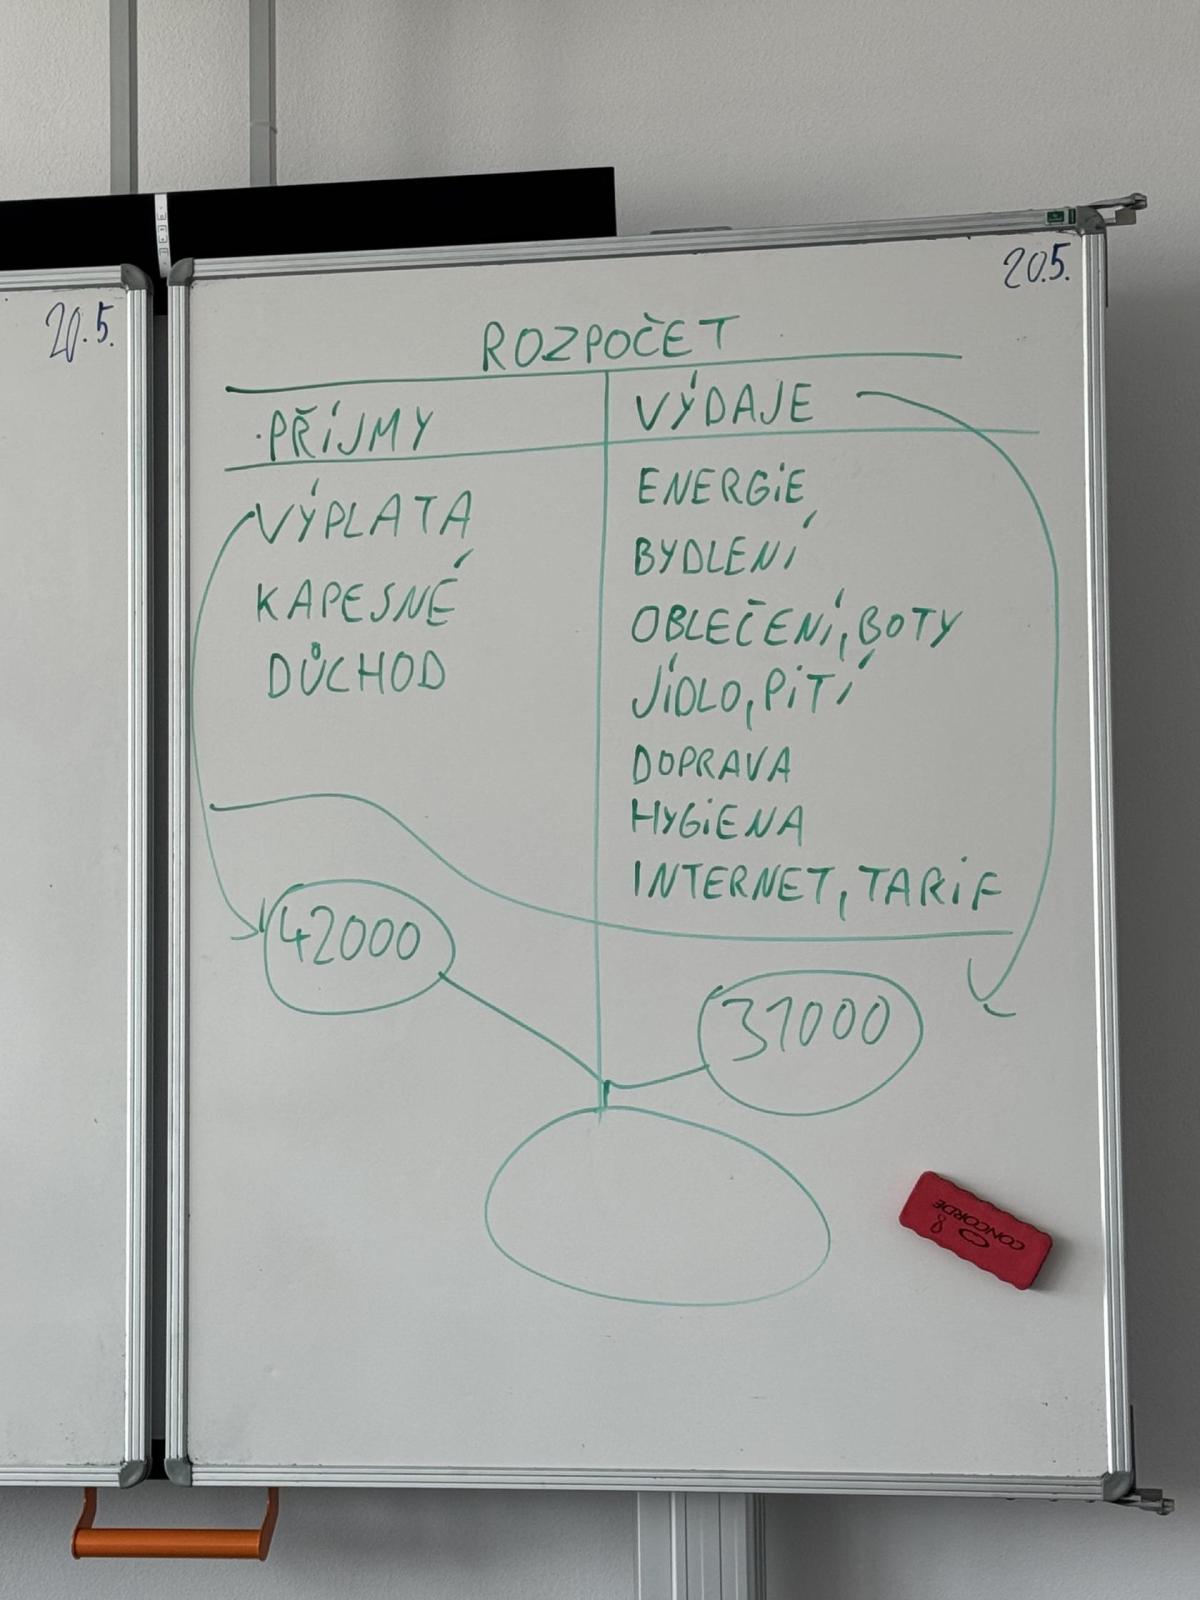 20.5.
20.5.
ROZPOČET
PŘÍJMY
VÝDAJE
VÝPLATA
KAPESNÉ
DŮCHOD
ENERGIE
BYDLENÍ
OBLEČENÍ, BOTY
JÍDLO, PITÍ
DOPRAVA
HYGIENA
INTERNET, TARIF
42000
31000
CONCORDE
8